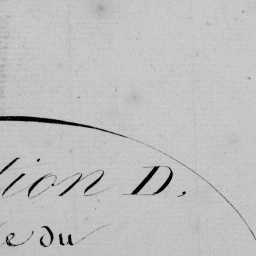 tion D.
e du